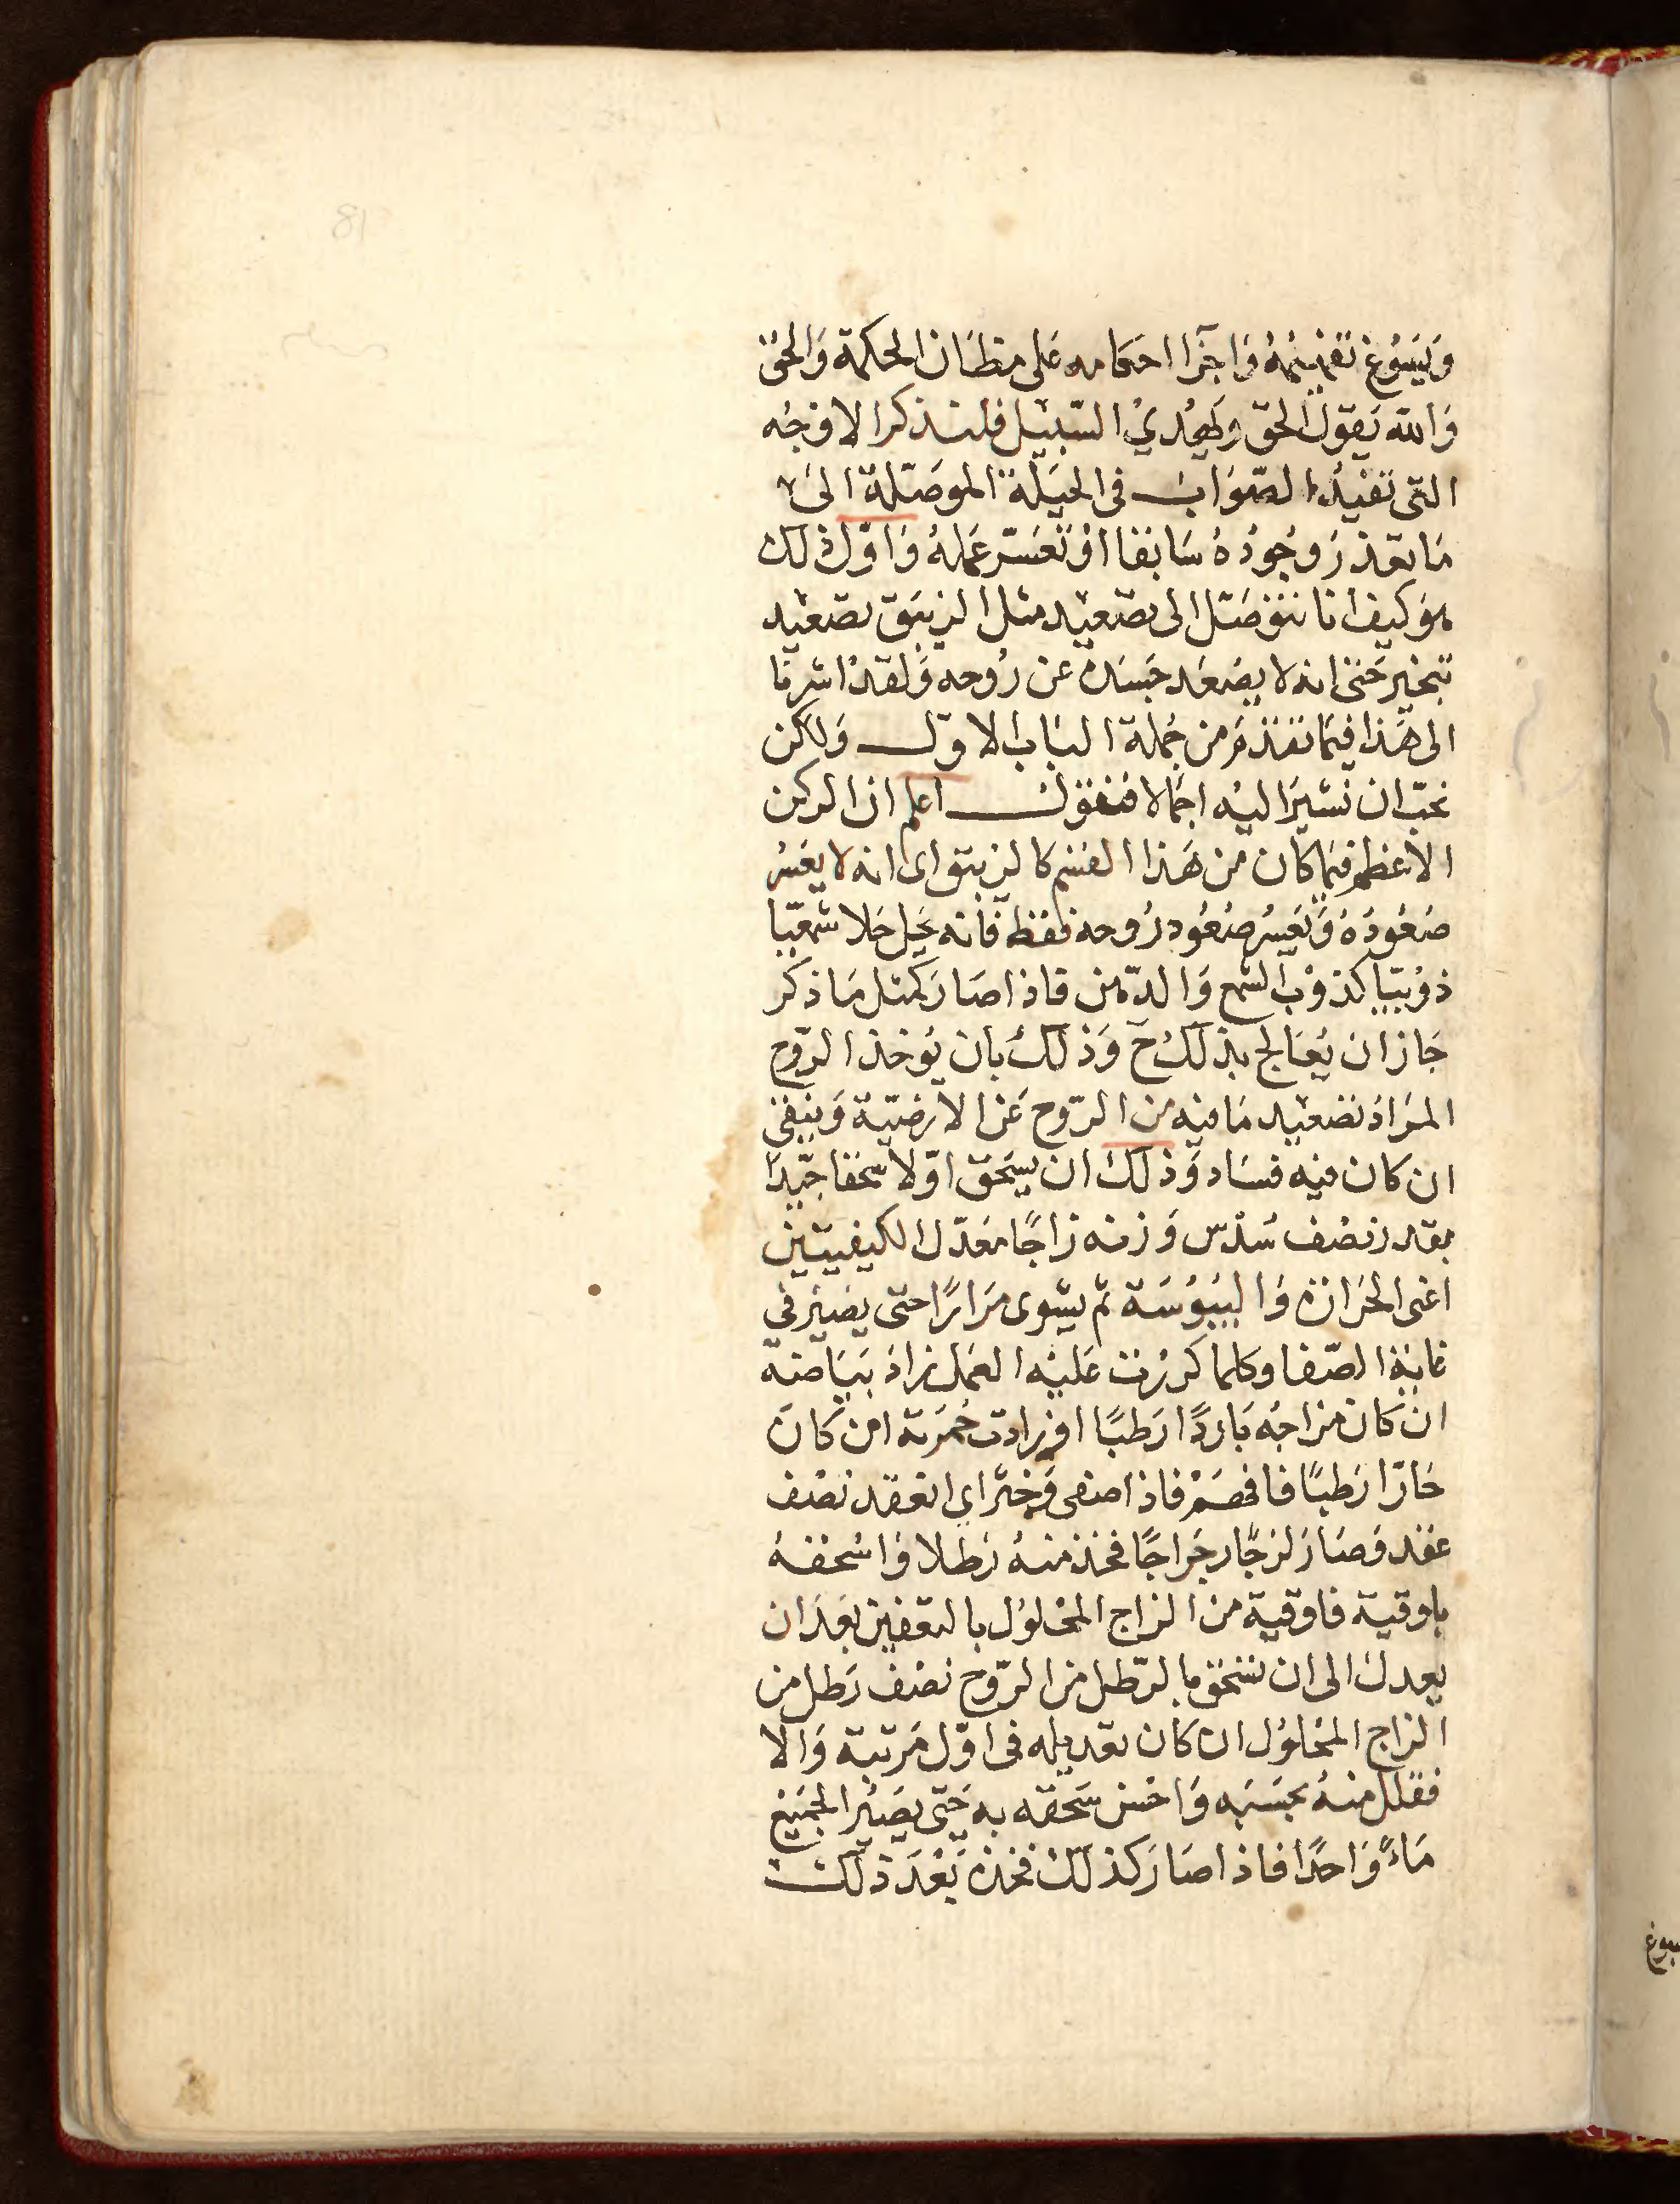 وَيَسُوغ تقديمهُ وَاجرَا احكامه عَلى مظَان الحكمة وَالحق
وَالله يَقول الحق وَيَهْدِي السّبيل فلنذكر الاوْجُه
التى تفيدُ الصّوَاب فى الحيَلة الموصّلة الى
مَا تعذر وجُودُهُ سَابقا اوْ تعَسّر عَملهُ وَاوّل ذلك
هوَ كيف انا نتوصَّل الى تصعيد مثل الزيبَق تصعيد
تبخير حَتى انه لا يصْعَد جَسَده عن رُوحه وَلقد اشرنا
الى هَذا فيمَا تقدم من جُملة البَاب الاول وَلكن
نحبّ ان نشير اليْه اجمَالا فنقول اعلم ان الركن
الاعظم فيمَا كان من هَذا القسم كالزيبق اى انه لا يعَسُر
صُعُودُهُ وَيَعَسُر صُعُود رُوحه فقط فانه يحَل حَلا شمعيّا
ذوْبيّا كذوْب الشمع وَالدّهن فاذا صَارَ كمثل مَا ذكر
جَاز ان يُعَالج بذلك ح وَذلك بان يُوخذ الرّوح
المرَاد تصْعيد مَا فيه من الرّوح عَن الارضيّة وَينقى
ان كان فيه فسَاد وَذلك ان يسحَق اوّلا سحقا جيّدًا
بقدر نصْف سُدْس وَزنه زاجًا معَدّل الكيفيتين
اعنى الحَرَارَة وَاليبُوسَة ثم يشوى مرَارًا حتى يصير فى
غاية الصّفا وكلما كرّرْت عَليْه العَمل زاد بَيَاضه
ان كَان مزاجُه بَاردًا رَطبًا او زادت حُمرَته ان كَان
حَارّا رَطبًا فافهَمْ فاذا صفى وَخثر اى انعقد نصْف
عقد وَصَارَ لزجًا رجرَاجًا فخذ منهُ رَطلا وَاسْحقهُ
باوقية فاوقية من الزاج المحْلوُل بالتعفين بَعدَ ان
يعدل الى ان تسحق بالرّطل من الرّوح نصْف رَطل من
الزاج المحْلوُل ان كَان تعديله فى اوّل مَرتبة وَالا
فقلل منهُ بحسَبه وَاحْسن سَحقه به حَتى يصَير الجَميع
مَاءً وَاحدًا فاذا صَارَ كذلك فخذه بَعْدَ ذلك